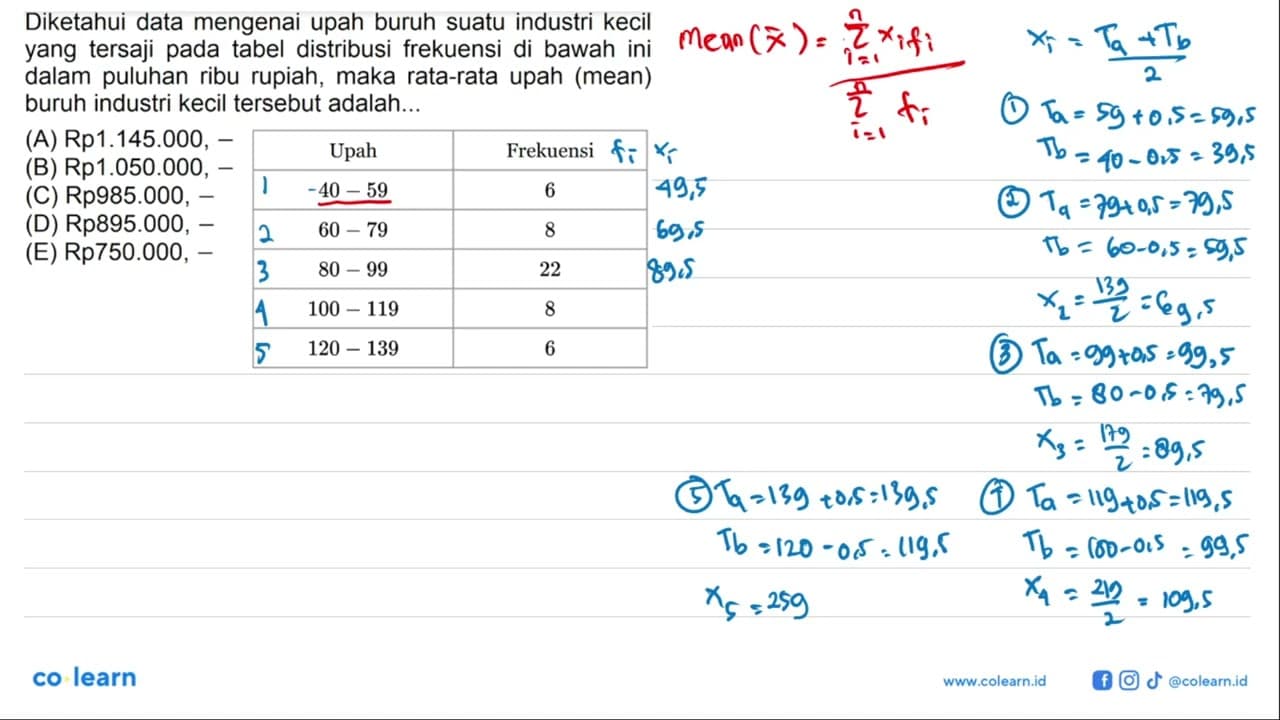 Diketahui data mengenai upah buruh suatu industri kecil
yang tersaji pada tabel distribusi frekuensi di bawah ini
dalam puluhan ribu rupiah, maka rata-rata upah (mean)
buruh industri kecil tersebut adalah...
(A) Rp1.145.000, –
(B) Rp1.050.000, –
(C) Rp985.000, –
(D) Rp895.000, –
(E) Rp750.000, –
Upah Frekuensi fi xi
1 -40 – 59 6 49,5
2 60 – 79 8 69,5
3 80 – 99 22 89,5
4 100 – 119 8
5 120 – 139 6
Mean (x̄) = n Σ i=1 xi fi / n Σ i=1 fi
xi = Ta + Tb / 2
① Ta = 59 + 0,5 = 59,5
Tb = 40 - 0,5 = 39,5
② Ta = 79 + 0,5 = 79,5
Tb = 60 - 0,5 = 59,5
x2 = 139/2 = 69,5
③ Ta = 99 + 0,5 = 99,5
Tb = 80 - 0,5 = 79,5
x3 = 179/2 = 89,5
④ Ta = 119 + 0,5 = 119,5
Tb = 100 - 0,5 = 99,5
x4 = 219/2 = 109,5
⑤ Ta = 139 + 0,5 = 139,5
Tb = 120 - 0,5 = 119,5
x5 = 259
co learn
www.colearn.id
@colearn.id